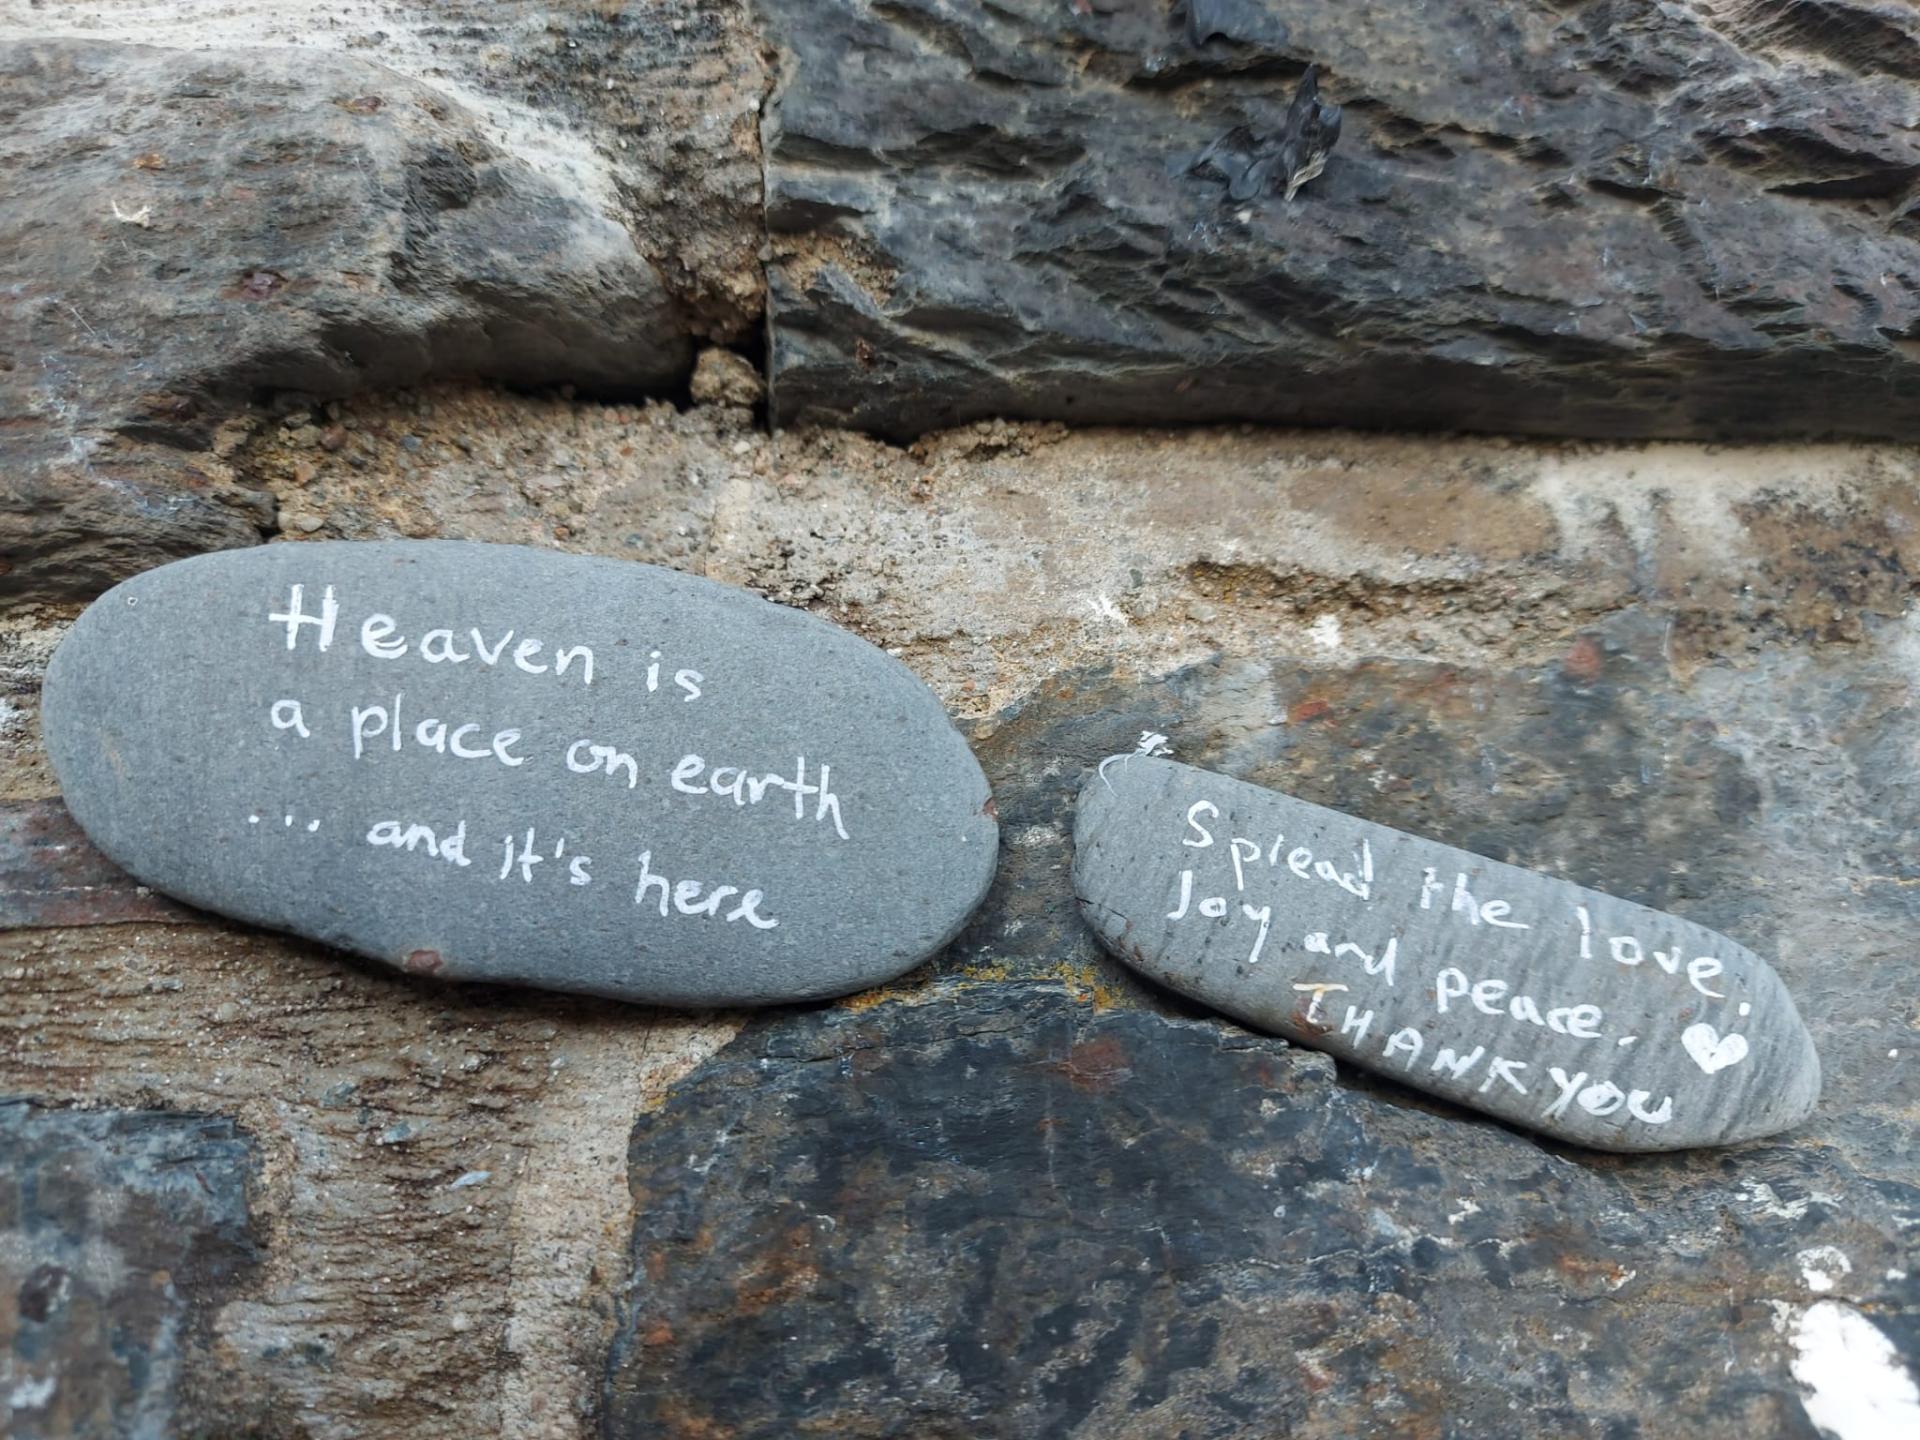 Heaven is
a place on earth
... and it's here
Splead the love,
Joy and peace.
THANK YOU